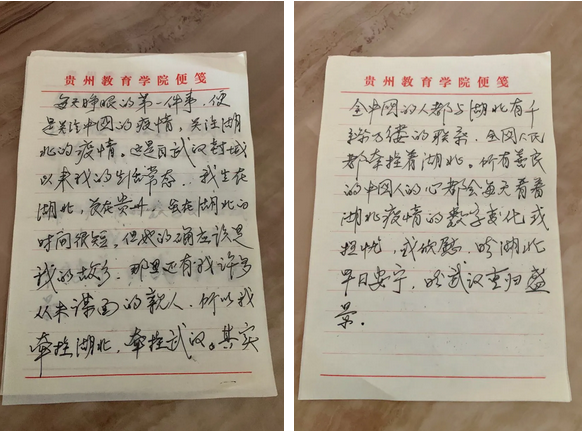 贵州教育学院便笺
每天睁眼的第一件事，便
是关注中国的疫情，关注湖
北的疫情。这是自武汉封城
以来我的生活常态。我生在
湖北，长在贵州，虽在湖北的
时间很短，但她的确应该是
我的故乡，那里还有我许多
从未谋面的亲人，所以我
牵挂湖北，牵挂武汉。其实
贵州教育学院便笺
全中国的人都与湖北有千
丝万缕的联系，全国人民
都牵挂着湖北。所有善良
的中国人的心都会每天看着
湖北疫情的数字变化或
担忧，或欣慰，盼湖北
早日安宁，盼武汉重归盛
景。